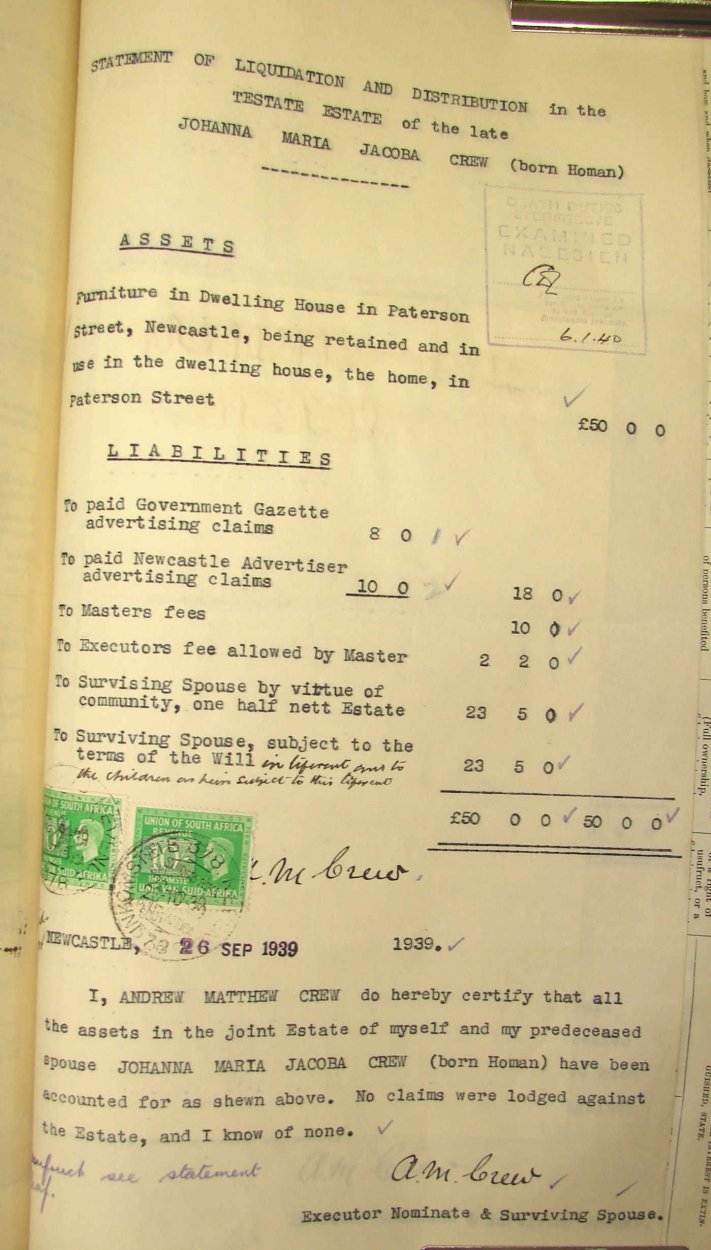 STATEMENT OF LIQUIDATION AND DISTRIBUTION in the
TESTATE ESTATE of the late
JOHANNA MARIA JACOBA CREW (born Homan)
DEATH DUTIES
EXAMINED
NAGESIEN
6.1.40
ASSETS
Furniture in Dwelling House in Paterson
Street, Newcastle, being retained and in
use in the dwelling house, the home, in
Paterson Street
£50 0 0
LIABILITIES
To paid Government Gazette
advertising claims 8 0
To paid Newcastle Advertiser
advertising claims 10 0 18 0
To Masters fees 10 0
To Executors fee allowed by Master 2 2 0
To Survising Spouse by virtue of
community, one half nett Estate 23 5 0
To Surviving Spouse, subject to the
terms of the Will in liferent and to 23 5 0
the children as heirs subject to this liferent
£50 0 0 50 0 0
UNION OF SOUTH AFRICA
REVENUE
INKOMSTE
UNIE VAN SUID-AFRIKA
A.M. Crew.
NEWCASTLE, 26 SEP 1939 1939.
I, ANDREW MATTHEW CREW do hereby certify that all
the assets in the joint Estate of myself and my predeceased
spouse JOHANNA MARIA JACOBA CREW (born Homan) have been
accounted for as shewn above. No claims were lodged against
the Estate, and I know of none.
see statement
A.M. Crew
Executor Nominate & Surviving Spouse.
of persons benefited
(Full ownership,
usufruct, or a